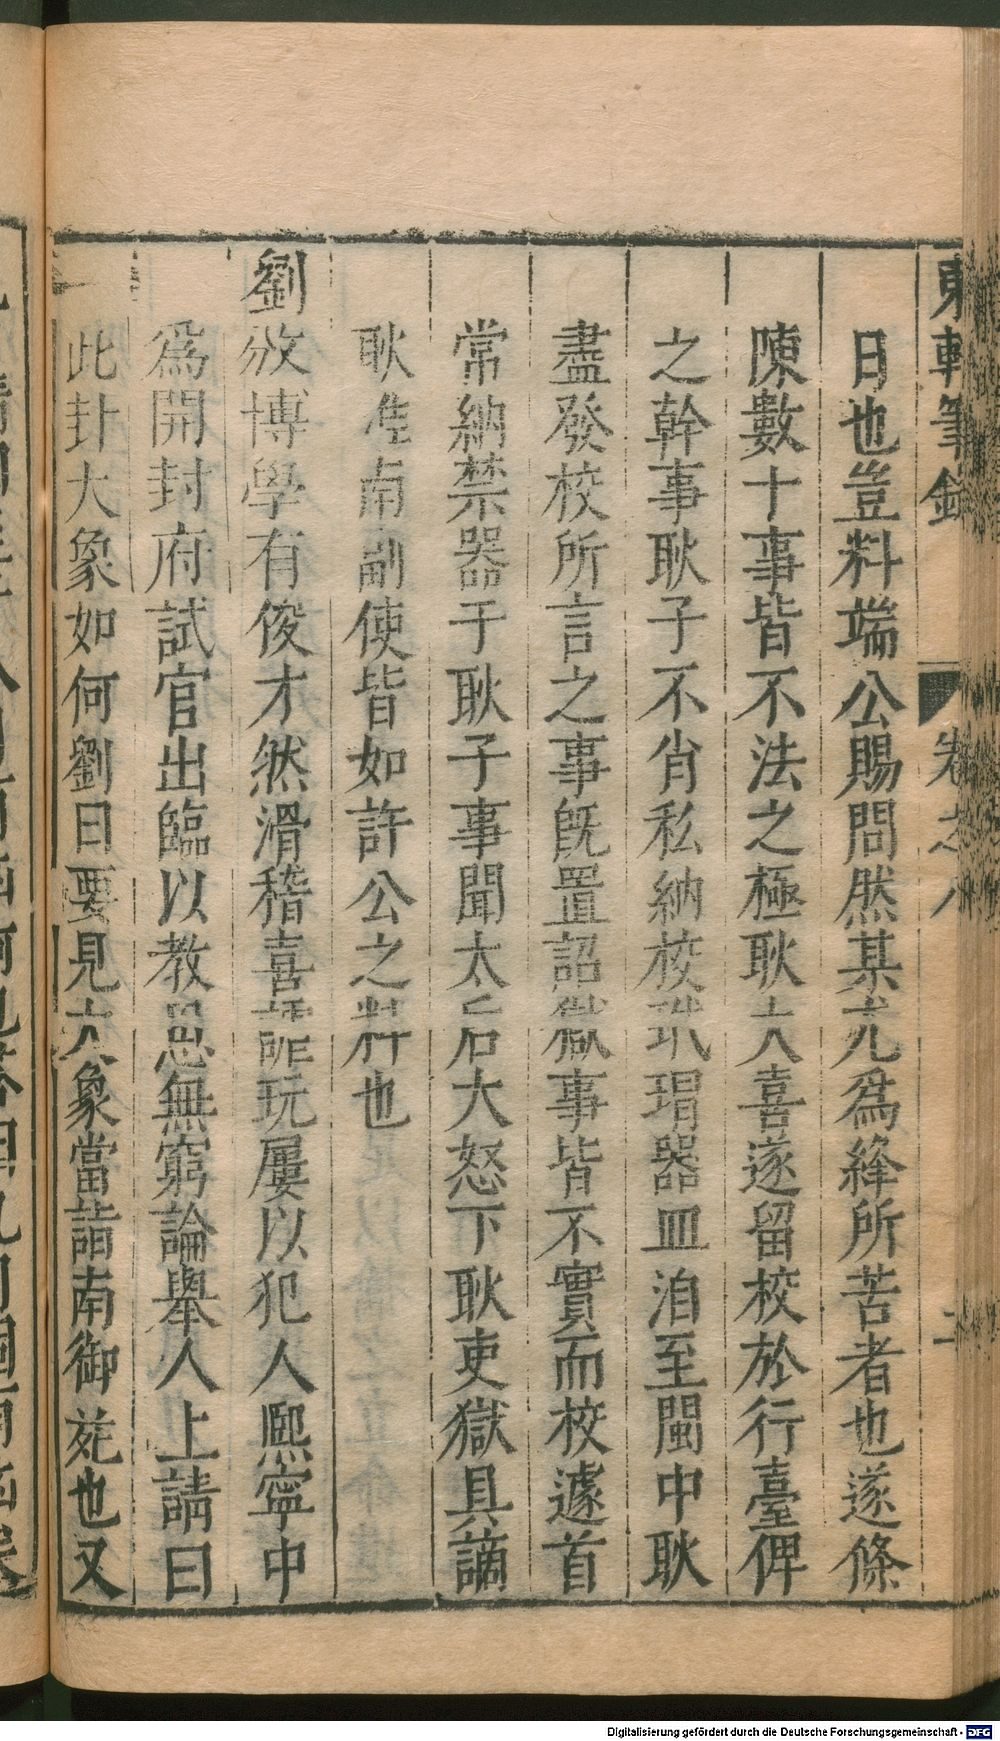 東軒筆錄 卷之八 二
日也豈料端公賜問然某尤爲絳所苦者也遂條
陳數十事皆不法之極耿大喜遂留校於行臺俾
之幹事耿子不肖私納校玳瑁器皿洎至閩中耿
盡發校所言之事旣置詔獄事皆不實而校遽首
常納禁器于耿子事聞太后大怒下耿吏獄具謫
耿淮南副使皆如許公之料也
劉攽博學有俊才然滑稽喜謔玩屢以犯人熙寧中
爲開封府試官出臨以教思無窮論舉人上請曰
此卦大象如何劉曰要見大象當詣南御苑也又
Digitalisierung gefördert durch die Deutsche Forschungsgemeinschaft - DFG